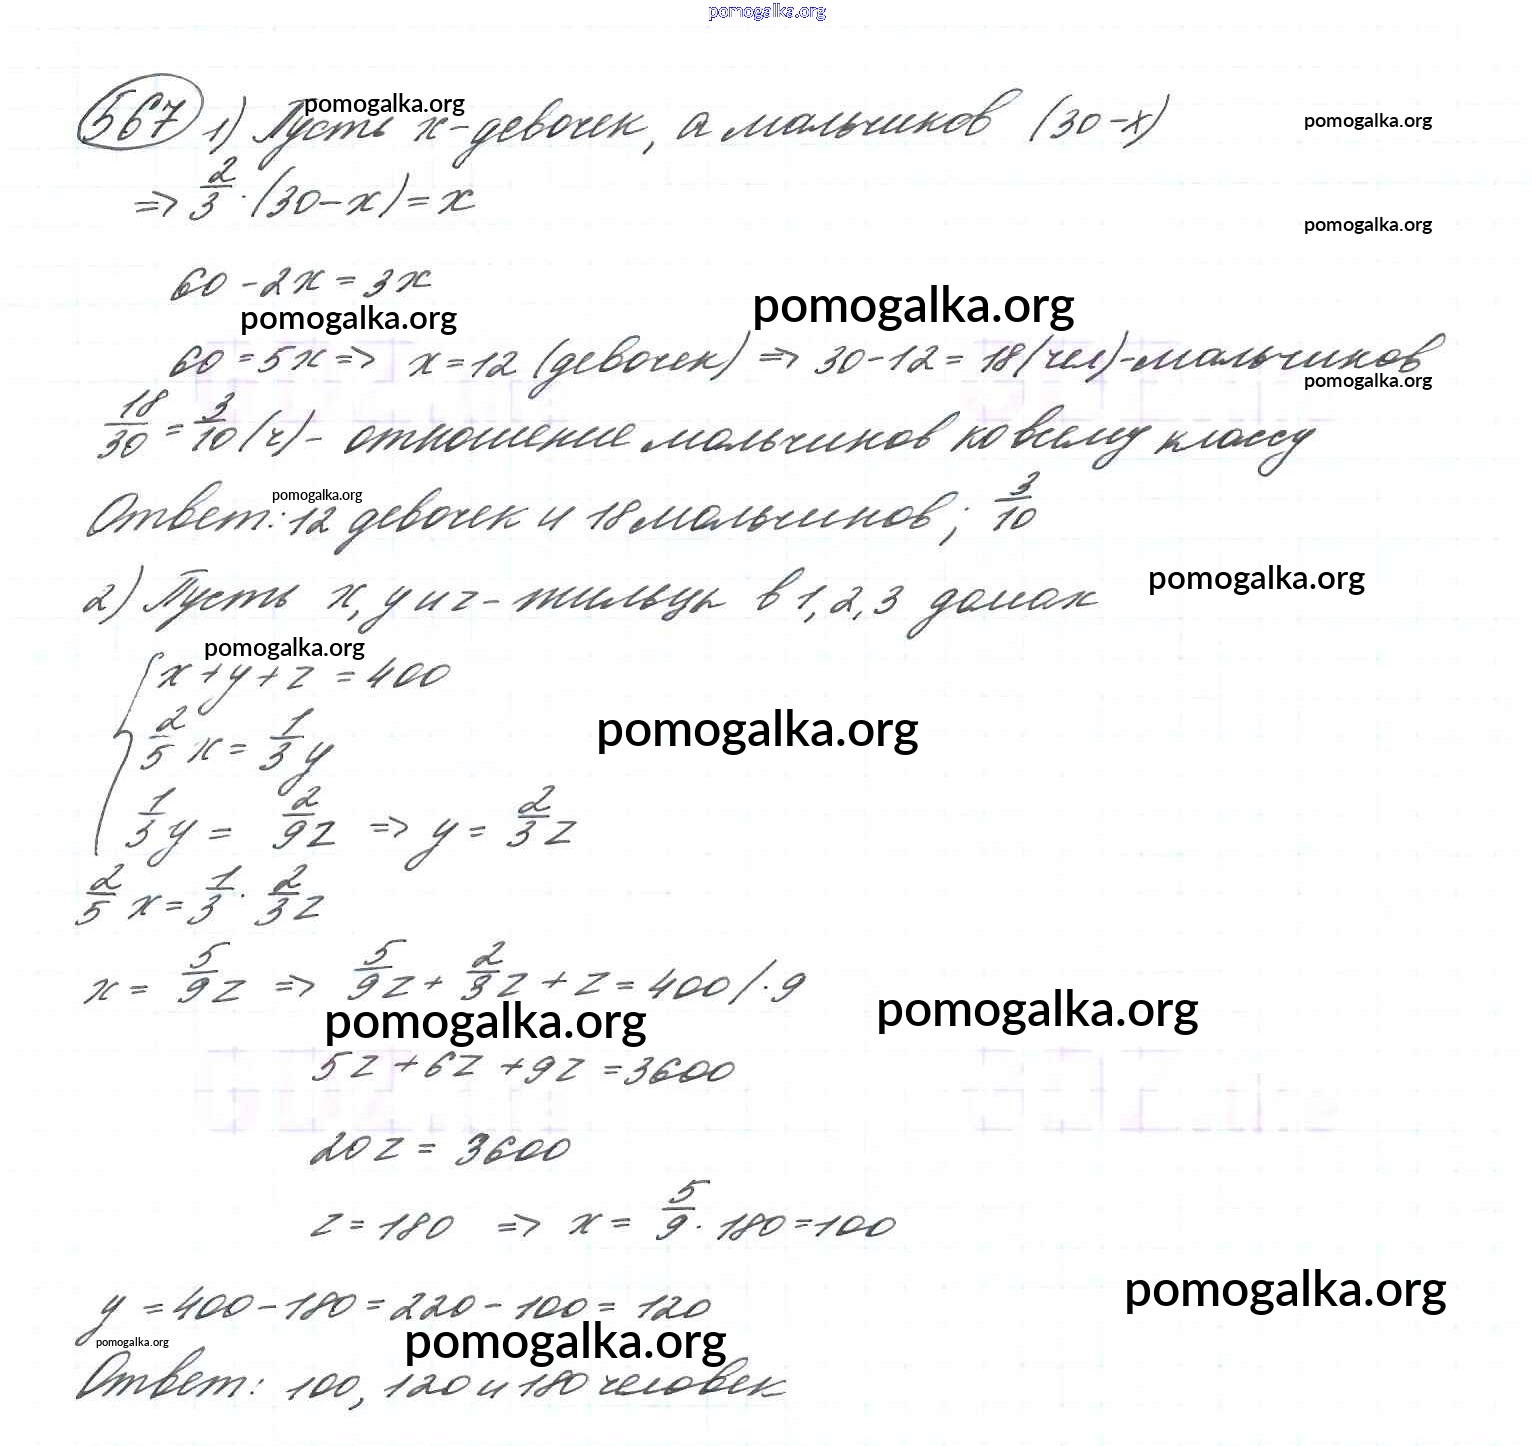 pomogalka.org
567 1) Пусть x-девочек, а мальчиков (30-x)
pomogalka.org
pomogalka.org
⇒ 2/3 · (30-x) = x
pomogalka.org
60 - 2x = 3x
pomogalka.org
pomogalka.org
60 = 5x ⇒ x = 12 (девочек) ⇒ 30 - 12 = 18 (чел) - мальчиков
pomogalka.org
18/30 = 3/10 (ч) - отношение мальчиков ко всему классу
pomogalka.org
Ответ: 12 девочек и 18 мальчиков; 3/10
pomogalka.org
2) Пусть x, y и z - жильцы в 1, 2, 3 домах
pomogalka.org
x + y + z = 400
2/5 x = 1/3 y
pomogalka.org
1/3 y = 2/9 z ⇒ y = 2/3 z
2/5 x = 1/3 · 2/3 z
x = 5/9 z ⇒ 5/9 z + 2/3 z + z = 400 / · 9
pomogalka.org
pomogalka.org
5z + 6z + 9z = 3600
20z = 3600
z = 180 ⇒ x = 5/9 · 180 = 100
pomogalka.org
y = 400 - 180 = 220 - 100 = 120
pomogalka.org
pomogalka.org
Ответ: 100, 120 и 180 человек